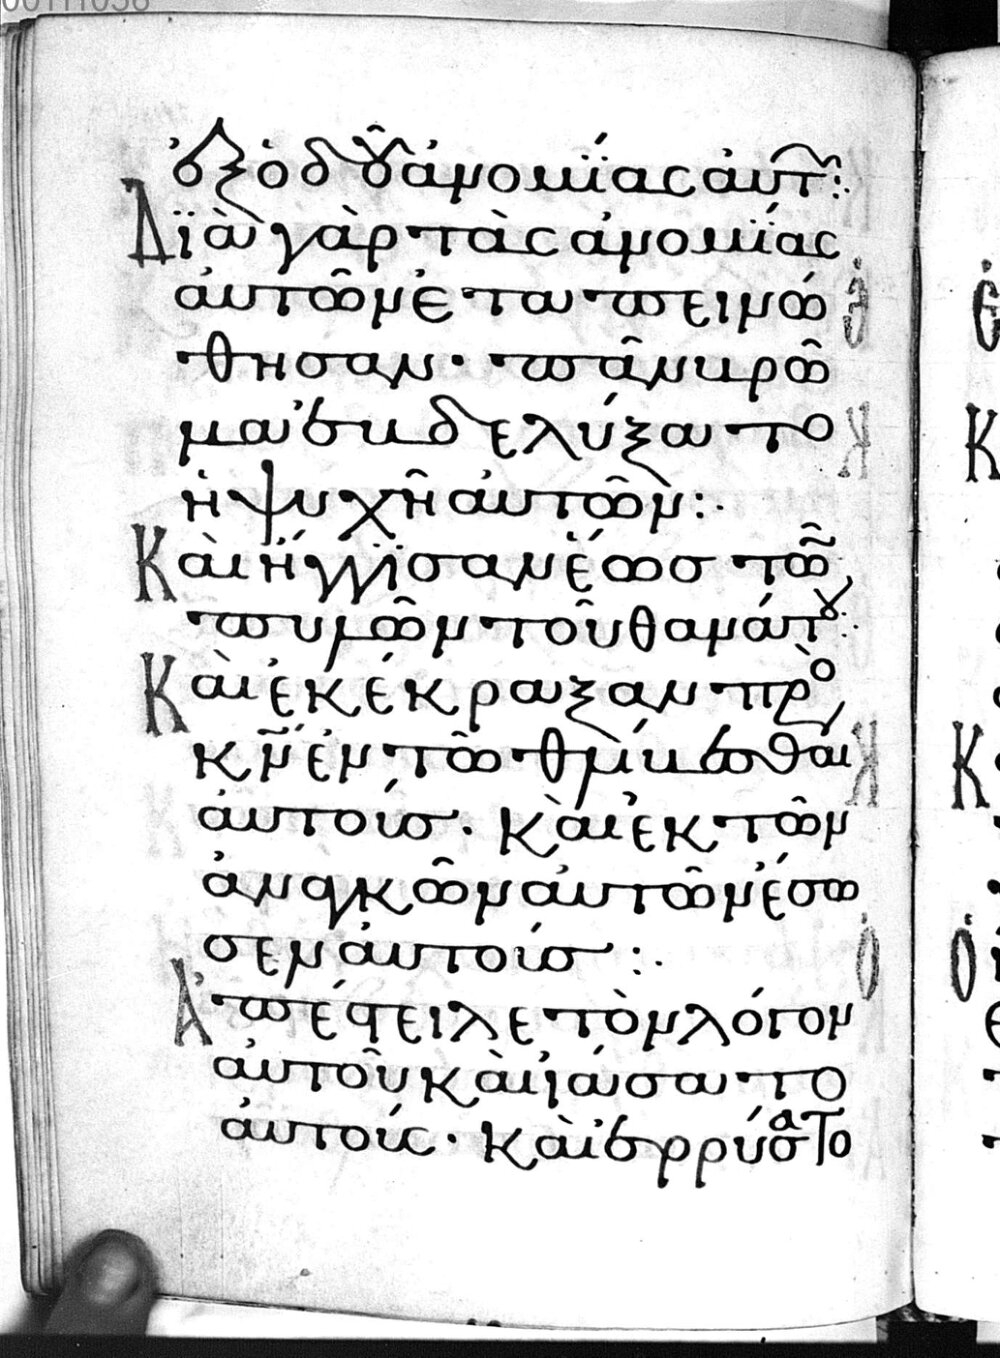 ἐξ ὁδοῦ ἀνομίας αὐτ͂:
Διὰ γὰρ τὰς ἀνομίας
αὐτῶν ἐταπεινώ
θησαν· πᾶν βρῶ
μα ἐβδελύξατο
ἡ ψυχὴ αὐτῶν:
Καὶ ἤγγισαν ἕως τῶ
πυλῶν τοῦ θανάτου:
Καὶ ἐκέκραξαν πρὸ
κν̄ ἐν τῶ θλίβεσθαι
αὐτοὺσ. καὶ ἐκ τῶν
ἀναγκῶν αὐτῶν ἔσω
σεν αὐτούσ:
Ἀπέστειλε τὸν λόγον
αὐτοῦ καὶ ἰάσατο
αὐτούς· καὶ ἐρρύσατο